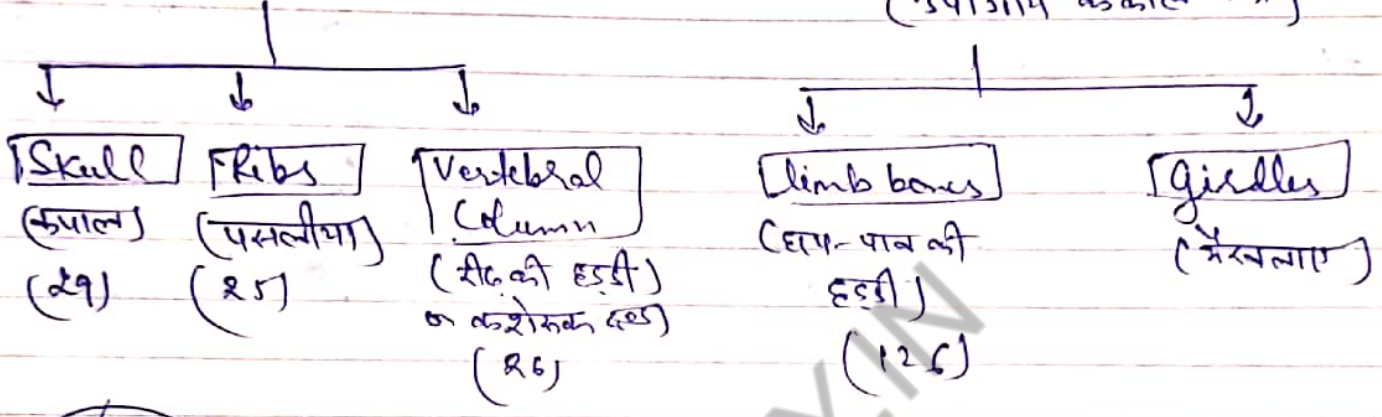 Skull
(कपाल)
(29)
Ribs
(पसलीया)
(25)
Vertebral
Column
(रीढ की हड्डी)
कशेरुक दण्ड)
(26)
limb bones
(हाथ-पाव की
हड्डी)
(126)
girdles
(मैखलाए)